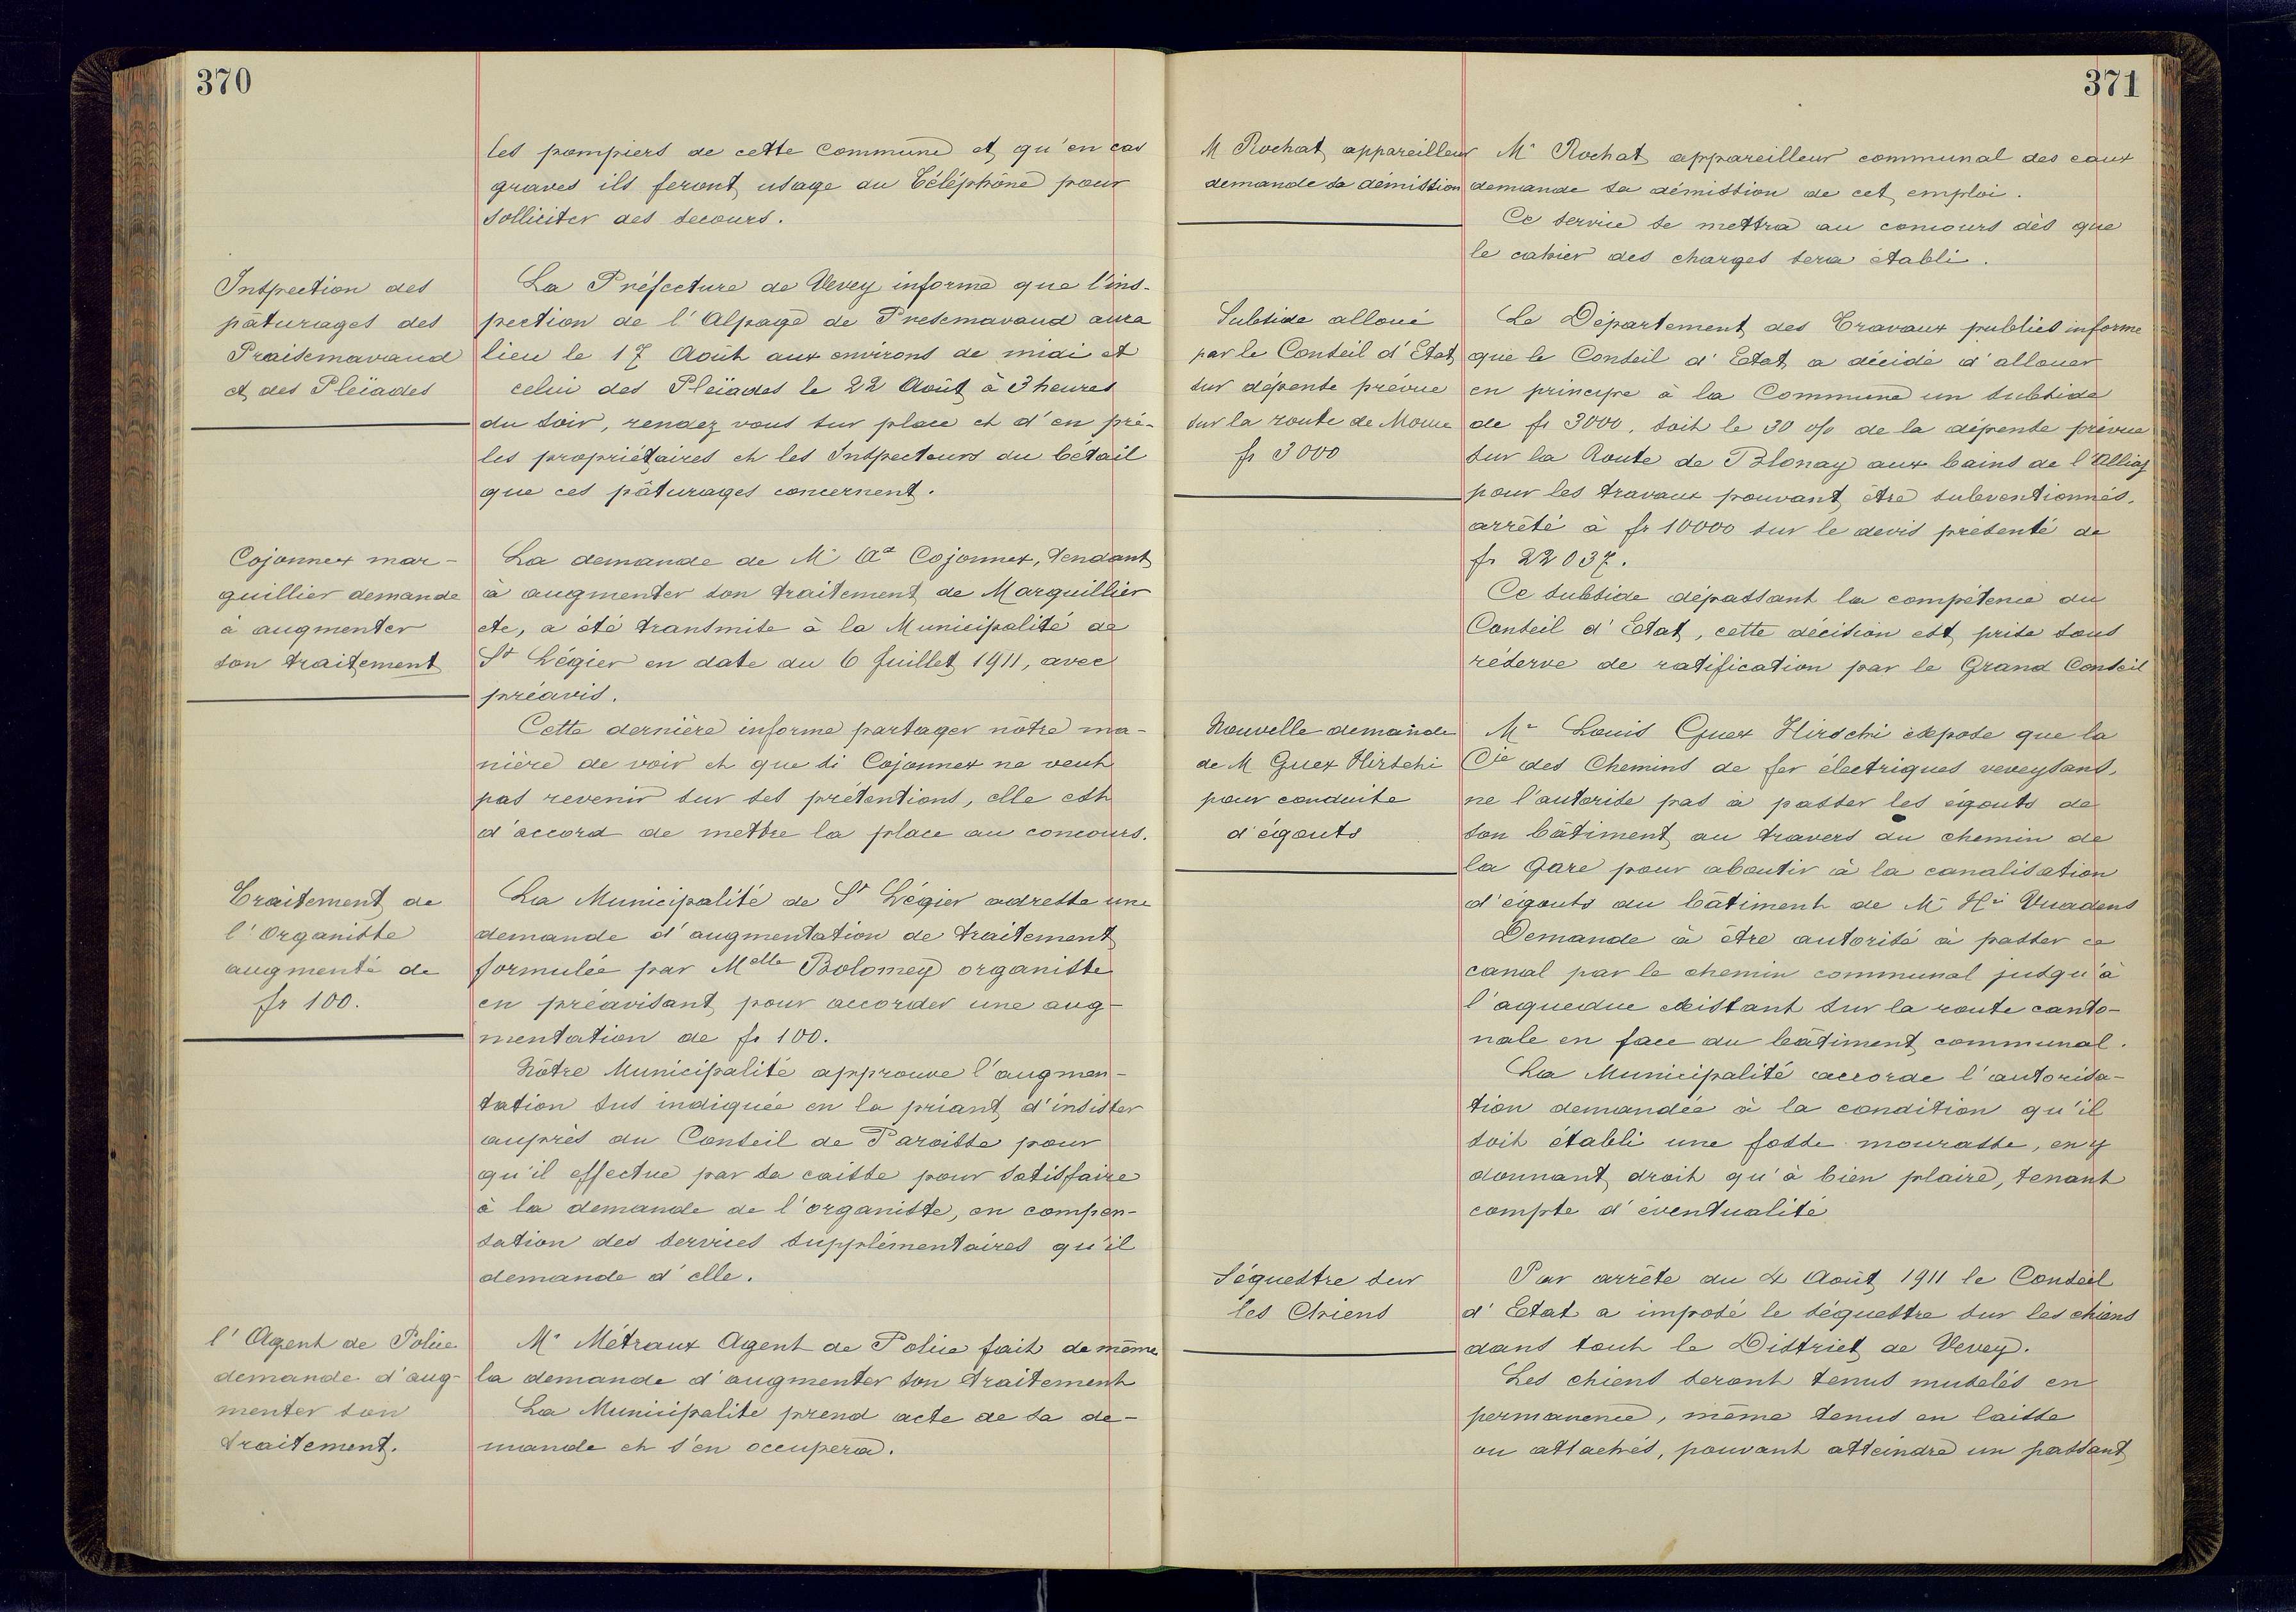 370
les pompiers de cette Commune et qu'en cas
graves ils feront usage du Téléphône pour
solliciter des secours.
Inspection des
pâturages des
Praisemavaud
et des Pleïades
La Préfecture de Vevey informe que l'ins-
pection de l'Alpage de Presemavaud aura
lieu le 17 Août aux environs de midi et
celui des Pleïades le 22 Août à 3 heures
du soir, rendez vous sur place et d'en pré-
les propriétaires et les Inspecteurs du bétail
que ces pâturages concernent.
Cojonnex mar-
guillier demande
à augmenter
son traitement
La demande de Mr Ad Cojonnex, tendant
à augmenter son traitement de Marguillier
etc, a été transmise à la Municipalité de
St Légier en date du 6 Juillet 1911, avec
préavis.
Cette dernière informe partager nôtre ma-
nière de voir et que si Cojonnex ne veut
pas revenir sur ses prétentions, elle est
d'accord de mettre la place au concours.
Traitement de
l'Organiste
augmenté de
fr 100.
La Municipalité de St Légier adresse une
demande d'augmentation de traitement
formulée par Melle Bolomey organiste
en préavisant pour accorder une aug-
mentation de fr 100.
Nôtre Municipalité approuve l'augmen-
tation sus indiquée en la priant d'insister
auprès du Conseil de Paroisse pour
qu'il effectue par sa caisse pour satisfaire
à la demande de l'organiste, en compen-
sation des services supplémentaires qu'il
demande d'elle.
l'Agent de Police
demande d'aug-
menter son
traitement.
Mr Métraux Agent de Police fait de même
la demande d'augmenter son traitement
La Municipalité prend acte de sa de-
mande et s'en occupera.
371
M Rochat appareilleur
demande sa démission
Mr Rochat appareilleur communal des eaux
demande sa démission de cet emploi.
Ce service se mettra au concours dès que
le cahier des charges sera établi.
Subside alloué
par le Conseil d'Etat
sur dépense prévue
sur la route de
fr 3000
Le Département des Travaux publics informe
que le Conseil d'Etat a décidé d'allouer
en principe à la Commune un subside
de fr 3000, soit le 30 o/o de la dépense prévue
sur la Route de Blonay aux bains de l'Alliaz
pour les travaux pouvant être subventionnés,
arrêté à fr 10000 sur le devis présenté de
fr 22037.
Ce subside dépassant la compétence du
Conseil d'Etat, cette décision est prise sous
réserve de ratification par le Grand Conseil
Nouvelle demande
de M Guex Hirschi
pour conduite
d'égouts
Mr Louis Guex Hirschi expose que la
Cie des Chemins de fer électriques veveysans,
ne l'autorise pas à passer les égouts de
son bâtiment au travers du chemin de
la Gare pour aboutir à la canalisation
d'égouts du bâtiment de Mr Hri Vuadens
Demande à être autorisé à passer ce
canal par le chemin communal jusqu'à
l'aqueduc existant sur la route canto-
nale en face du bâtiment communal.
La Municipalité accorde l'autorisa-
tion demandée à la condition qu'il
soit établi une fosse mourasse, en y
donnant droit qu'à bien plaire, tenant
compte d'éventualité
Séquestre sur
les Chiens
Par arrête du 4 Août 1911 le Conseil
d'Etat a imposé le séquestre sur les chiens
dans tout le District de Vevey.
Les chiens seront tenus muselés en
permanence, même tenus en laisse
ou attachés, pouvant atteindre un passant